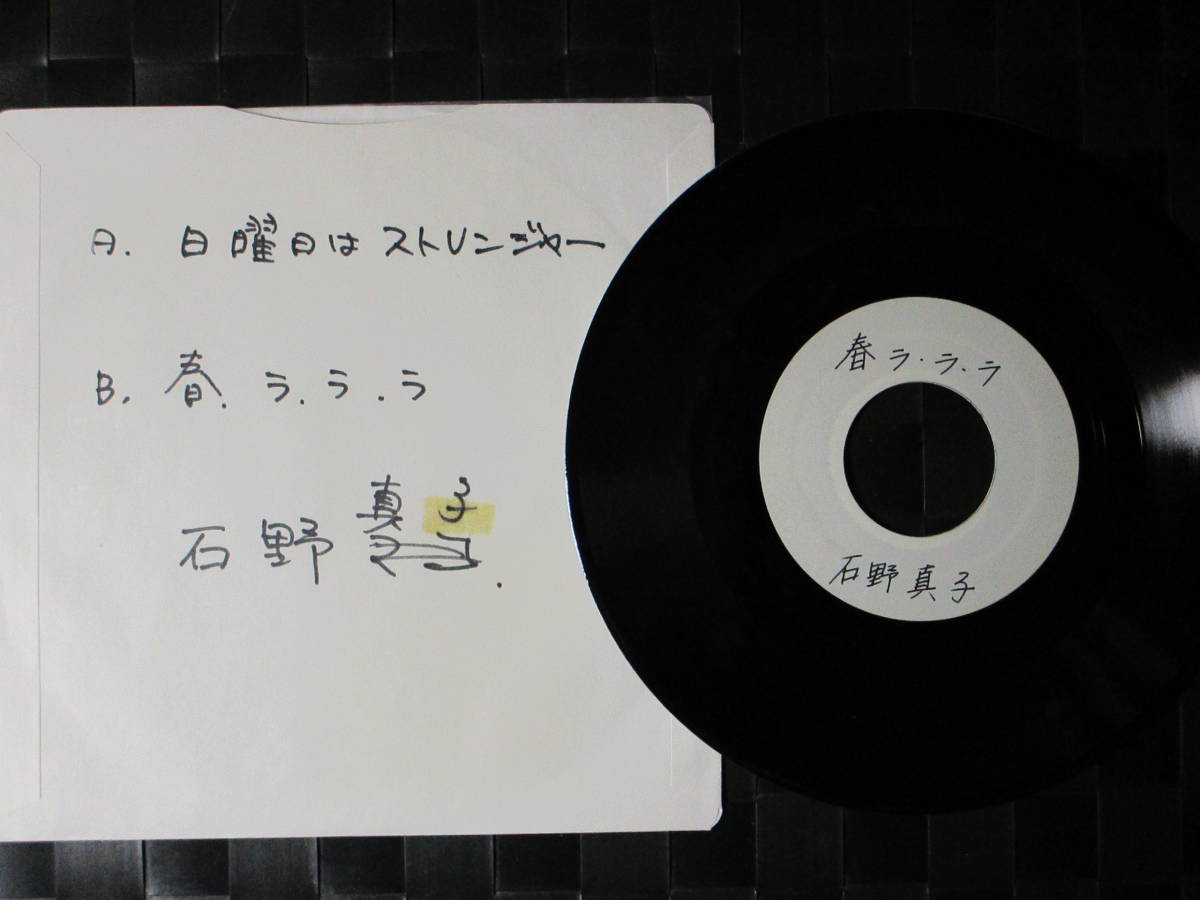 A. 日曜日はストレンジャー
B. 春.ラ.ラ.ラ
石野真子.
春ラ・ラ・ラ
石野真子